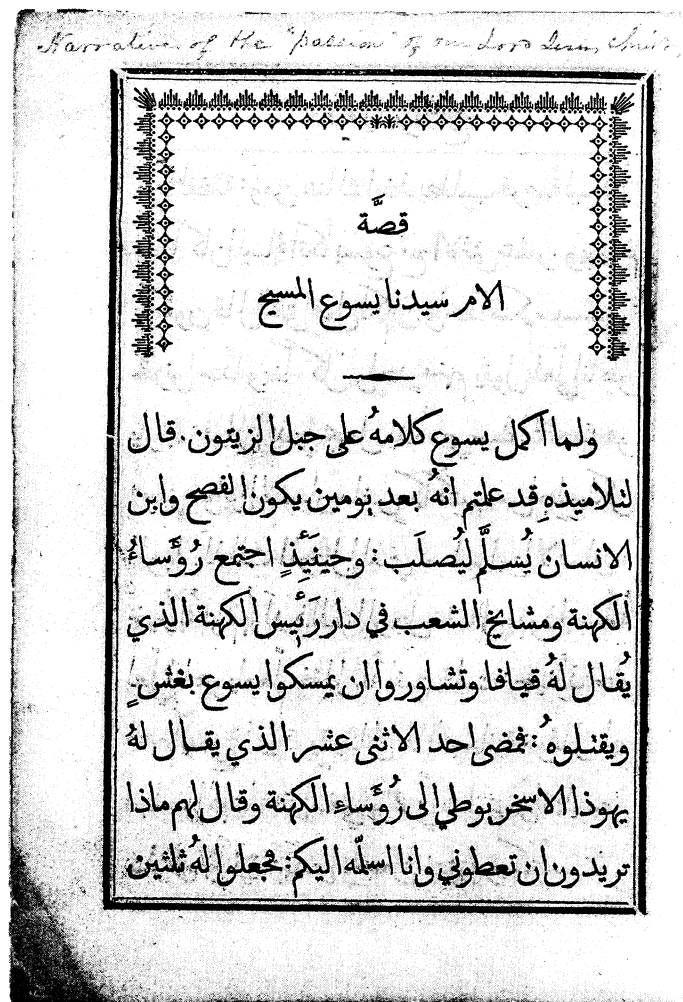 Narrative of the "passion" of our Lord Jesus Christ,
قصَّة
الام سيدنا يسوع المسيح
ولما اكمل يسوع كلامهُ على جبل الزيتون. قال
لتلاميذهِ قد علمتم انهُ بعد يومين يكون الفصح وابن
الانسان يُسلَّم ليُصلَب: وحينَئِذٍ اجتمع رُؤَساءُ
الكهنة ومشايخ الشعب في دار رَئِيس الكهنة الذي
يُقال لهُ قيافا وتشاوروا ان يمسكوا يسوع بغشٍ
ويقتلوهُ: فمضى احد الاثنى عشر الذي يقال لهُ
يهوذا الاسخريوطي الى رُؤَساءِ الكهنة وقال لهم ماذا
تريدون ان تعطوني وانا اسلّمه اليكم: فجعلوا لهُ ثلثين